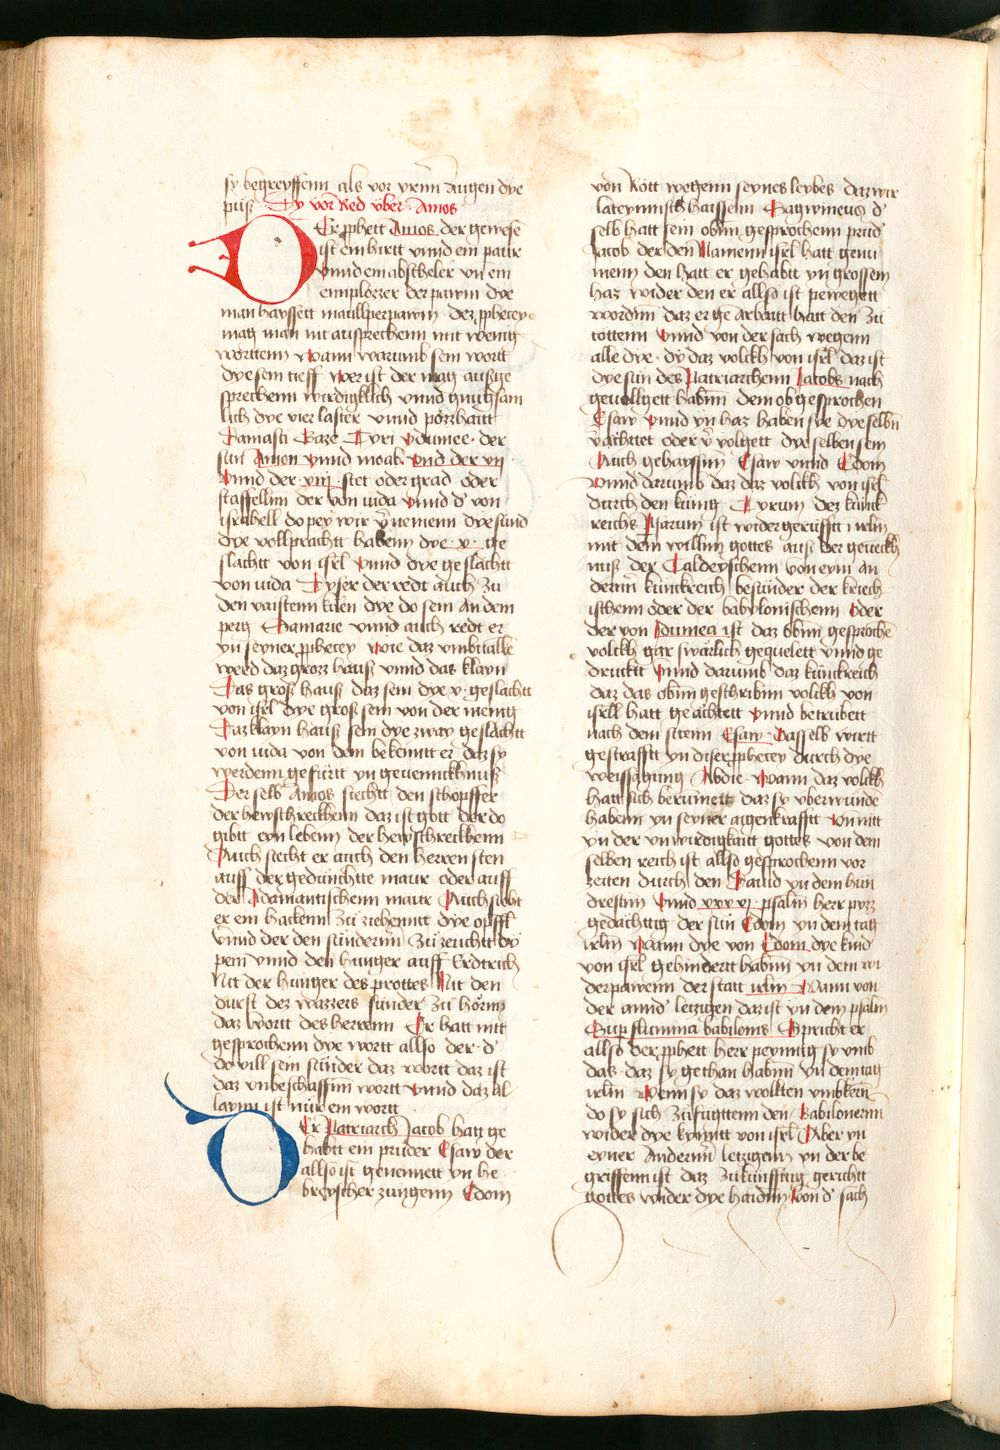 sy begreyffenn als vor vnnn augen dye
puß Dy vor Red vber Amos
Er pphett Amos der gewese
ist ein hirtt vnnd ein paur
vnnd ein abscheler vn ein
emplözzer der pawm dye
man hayssett maullperpawm dez pphetey
mag man nit aussprechenn mit wenig
worttenn wann warumb sein wortt
dye sein tieff wer ist der mag außge
sprechenn wirdigklich vnnd gnughsam
lich dye vier laster vnnd pözzhaitt
Damasci Gaze Tyri ydumee der
sün Amon vnnd moab vnd der vij
vnnd der viij stet oder grad oder
staffelln der von iuda vnnd d von
israhell do pey wir vnemenn dye sünd
dye vollprachtt habenn dye x ge
slächtt von isrl vnnd dye geslächtt
von iuda Dyser der redt auch zu
den vaistenn küen dye do sein an dem
perg Samarie vnnd auch redt er
yn seyner pphetey wie daz vmbualle
werd daz grozz hauß vnnd das klayn
Das groß hauß daz sein dye x geslächtt
von isrl dye groß sein von der menig
Daz klayn hauß sein dye zway geslächtt
von iuda von dem bekenntt er daz sy
werdenn gefürtt yn geuennckhnuß
Der selb Amos siechtt den schöpffer
der heyschreckhenn daz ist gott der do
gibtt eyn lebenn der heyschreckhenn
Auch siecht er auch den herren sten
auff der gedünchtte maur oder auff
der Adamantischenn maur Auch siecht
er ein hackenn zu ziehenntt dye öpffl
vnnd der den sündernn zu zeuchtt dy
pein vnnd den hunger auff Erdtrich
Nit der hunger des prottes Nit den
durst dez wazzers sünder zu hörnn
daz wortt des herrenn Er hatt nitt
gesprochenn dye wortt allso der d
do vill sein sünder daz wortt daz ist
daz vnbeschaffnn wortt vnnd daz al
layn ist nur ein wortt
Er Patriarch Jacob hatt ge
habtt ein pruder Esaw der
allso ist genennett yn he
breyscher zungenn Edom
von Rött wegenn seynes leybes daz wir
lateynnisch haissenn Sagwineus d
selb hatt sein obnn gesprochenn prud
Jacob der den Namenn isrl hatt genu
menn den hatt er gehabtt yn grossem
haz wider den er allso ist pewegett
wordnn daz er ge arbaitt hatt den zu
töttenn vnnd von der sach wegenn
alle dye dy daz volckh von isrl daz ist
dye sün des Patriarchenn Jacobs nach
geuollgett habnn dem ob gesprochen
Esaw vnnd yn haz haben sye dye selbn
vächttet oder v volgett dye selben sein
Auch gehayssnn Esaw vnnd Edom
vnnd darumb daz daz volckh von isrl
durch den künig Cyrum dez künk
reichs Psarum ist widergerüfftt i irlm
mit dem willnn gottes auß der geueckh
nuß der Caldeyschenn von eym an
dernn künckreich besünder der kriech
ischenn oder der babylonischenn Oder
der von Idumea ist daz obnn gesproche
volckh gar swärlich gequelett vnnd ge
drucktt vnnd darumb daz künckreich
daz das obnn geschribnn volckh von
isrll hatt geächtett vnnd betrübett
nach dem sitenn Esaw Dasselb wirtt
gestrafftt yn diser pphetey durch dye
weissagung Abdie Wann daz volckh
hatt sich berümett daz sy vberwunde
habenn yn seyner aygenkrafftt vnnitt
yn der vnwirdigkaitt gottes von dem
selben reich ist allso gesprochenn vor
zeiten durch den Dauid yn dem hun
drestnn vnnd xxxvj psalm herr pyzz
gedächttig der sün Edom yn dem tag
irlm Wann dye von Edom dye kind
von isrl gehindertt habnn yn dem wi
derpawenn der statt irlm Wann von
der annd letzigen daz ist yn dem psalm
Sup flumina babilonis Spricht er
allso der pphett herr peynnig sy vmb
daz daz sy gethan habnn yn dem tag
irlm Wenn sy daz wolkten vmbkern
do sy sich zu fugttenn den Babilonernn
wider dye kynntt von isrl Aber yn
eyner Anderrnn letzigenn yn der be
griffenn ist daz zukünfftig gerichtt
gottes wider dye haidnn von d sach